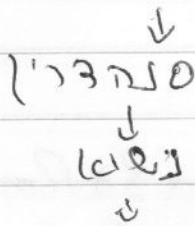 סנהדרין
נשיא